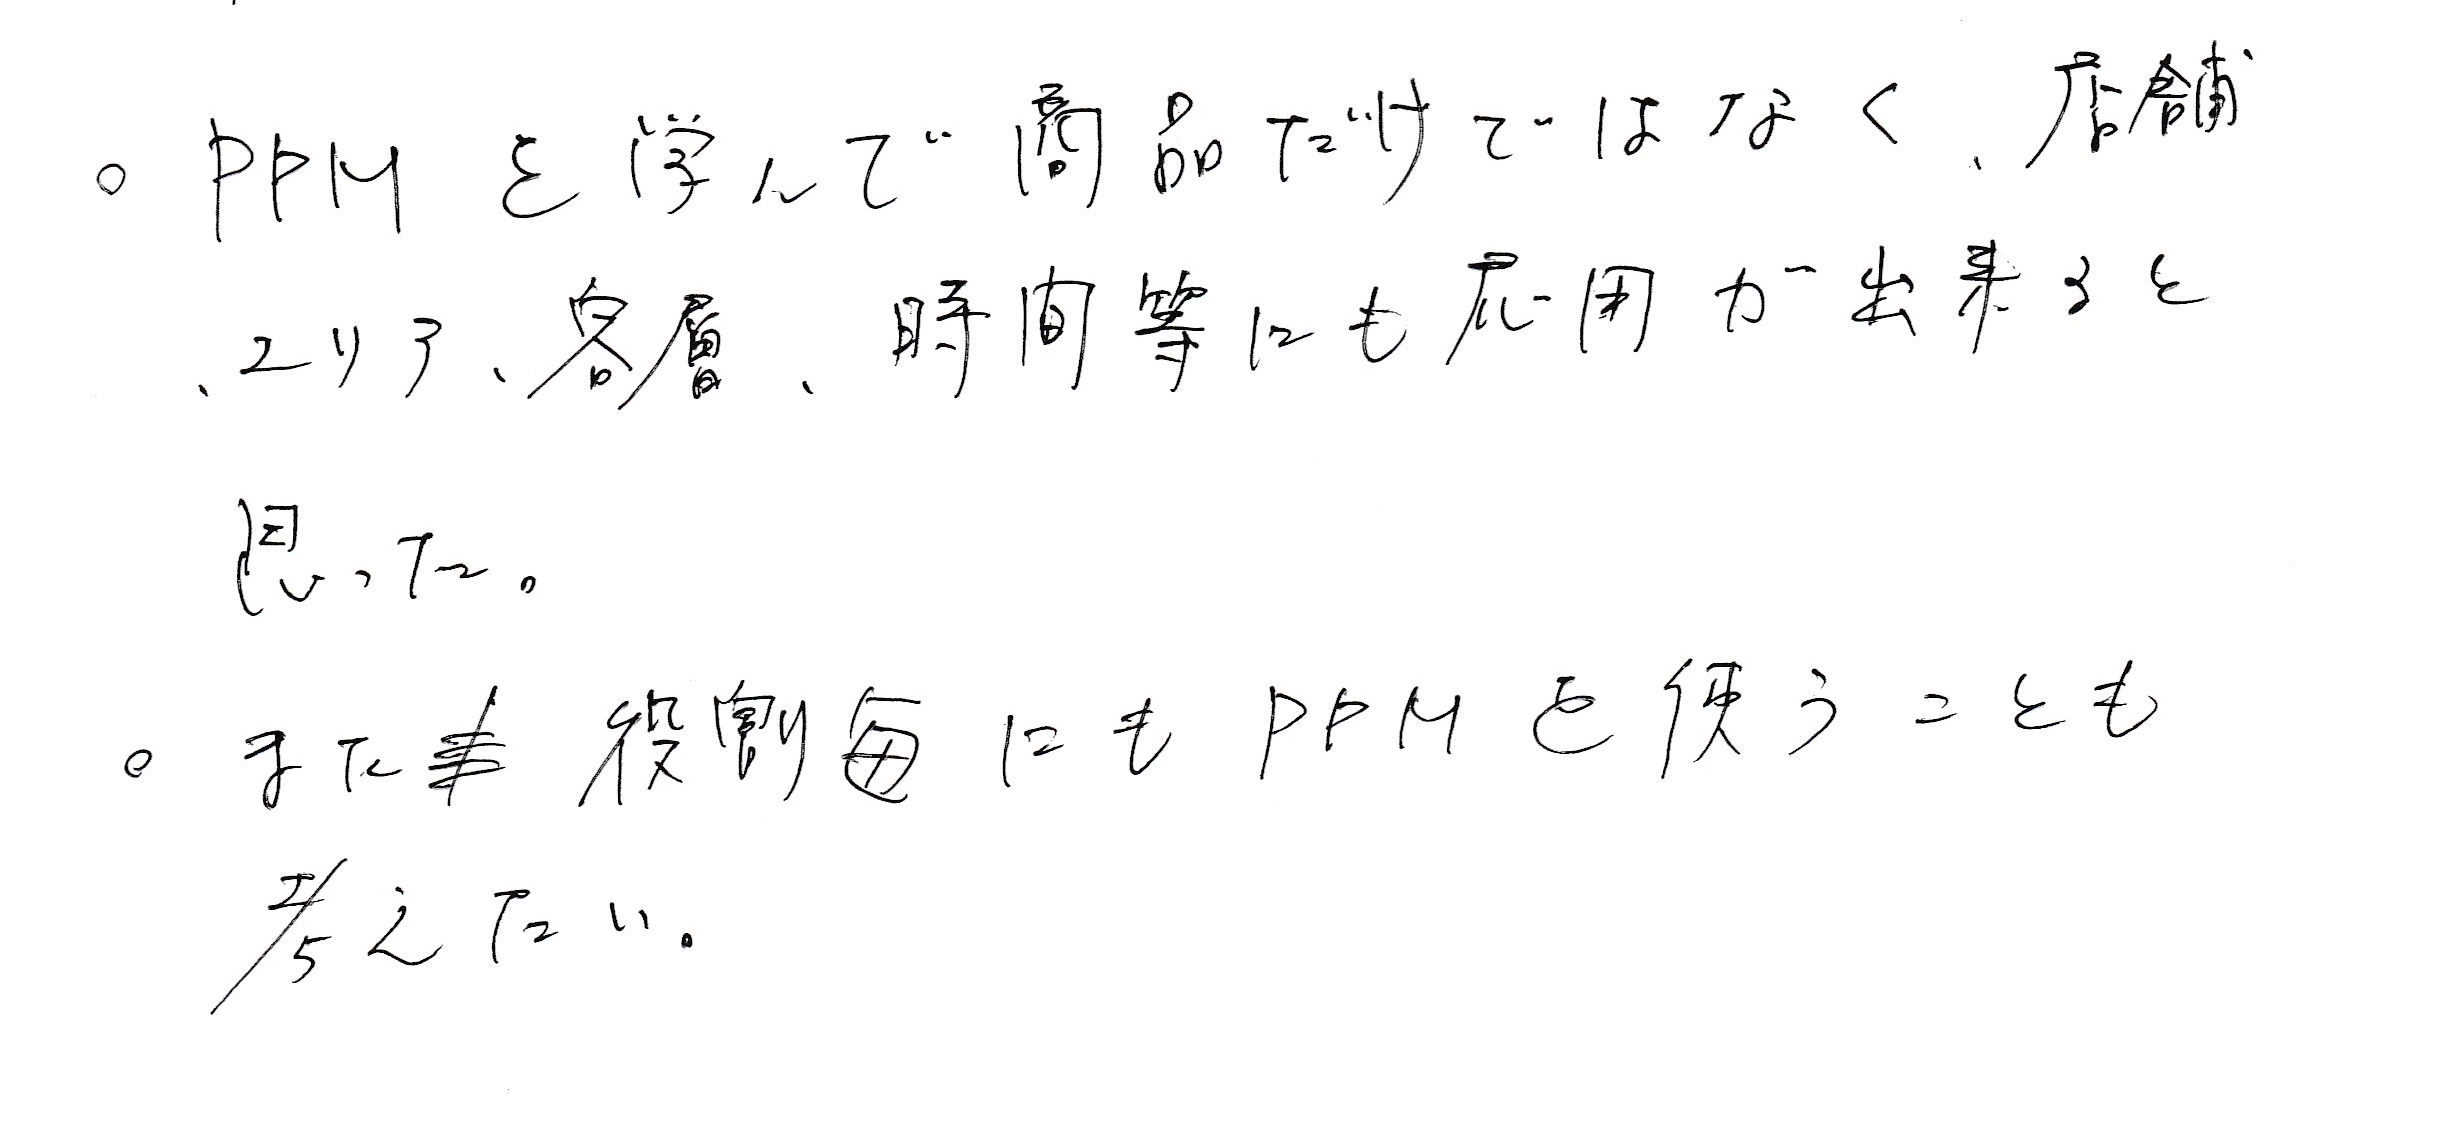 ○ PPMを学んで商品だけではなく、店舗
、エリア、客層、時間等にも応用が出来ると
思った。
○ また 役割毎にもPPMを使うことも
考えたい。